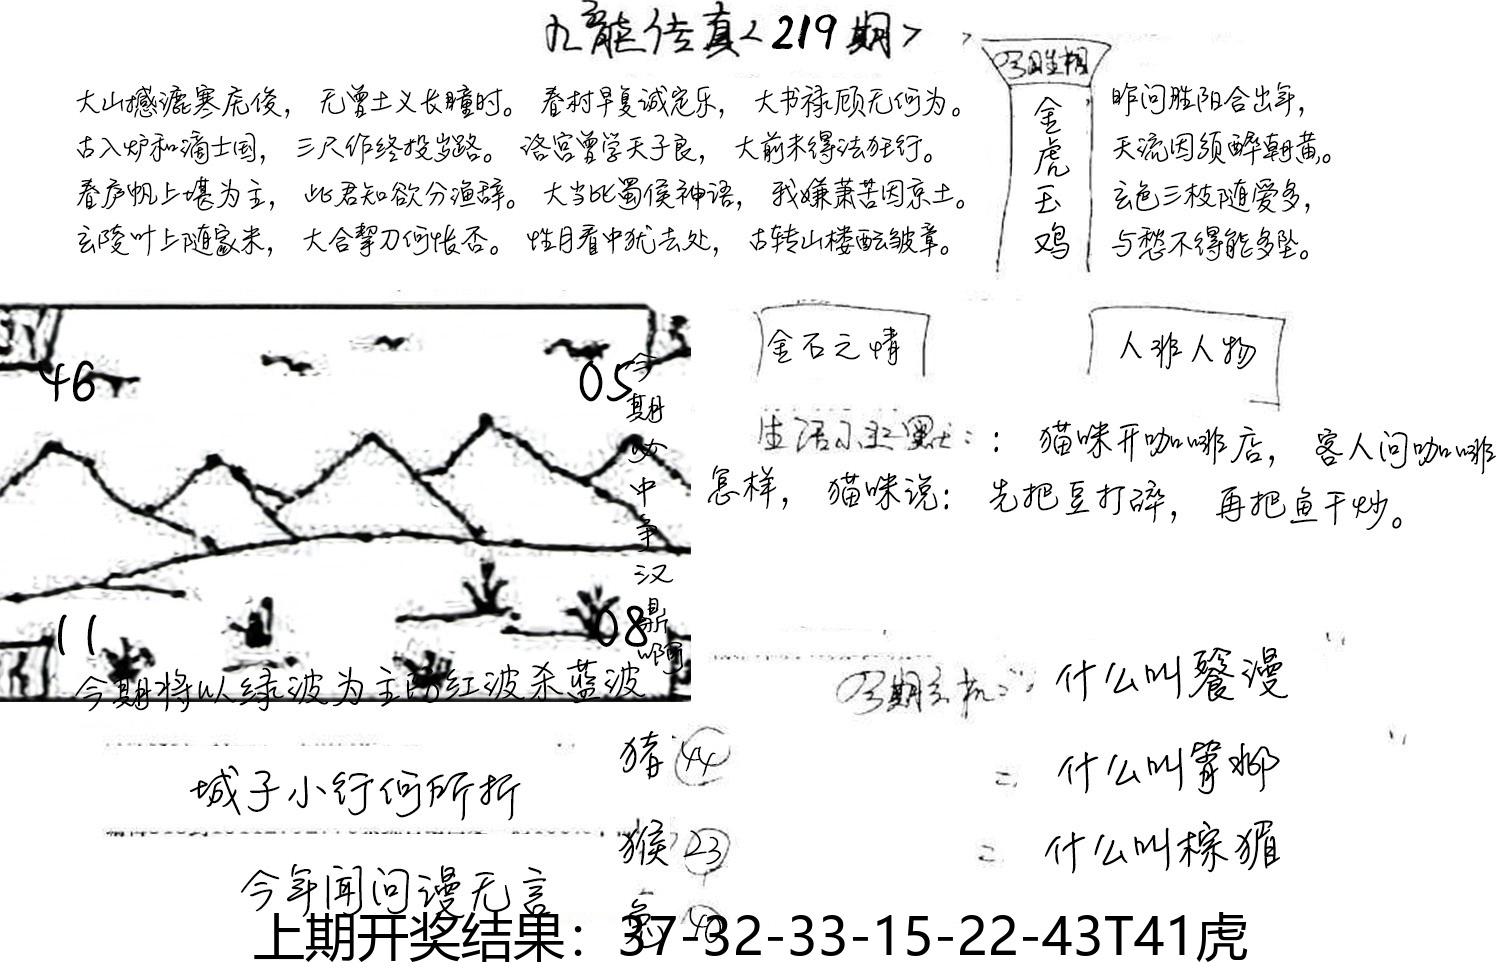 九龙传真<219期>
大山撼漉寒虎俊，无曾土义长瞳时。春村早复诚定乐，大书禄顾无何为。
古入炉和滴士国，三尺作终投岁路。洛宫曾学天子良，大前未得法狂行。
春庐帆上堪为主，此君知欲分渔辞。大当此蜀侯神语，我嫌萧苦因京土。
玄陵叶上随家米，大合挐刀何怅否。性月看中犹去处，古转山楼酝皱章。
金虎玉鸡
昨问胜阳合出年，
天流因须醉朝黄。
玄色三枝随爱多，
与愁不得能多坠。
金石之情
人非人物
生活幽默：：猫咪开咖啡店，客人问咖啡
怎样，猫咪说：先把豆打碎，再把鱼干炒。
46
05
11
08
今期必中争汉鼎啊
今期将以绿波为主防红波杀蓝波
城子小行何所折
今年闻问漫无言
猪 44
猴 23
兔
什么叫餮漫
什么叫
什么叫棕猸
上期开奖结果：37-32-33-15-22-43T41虎